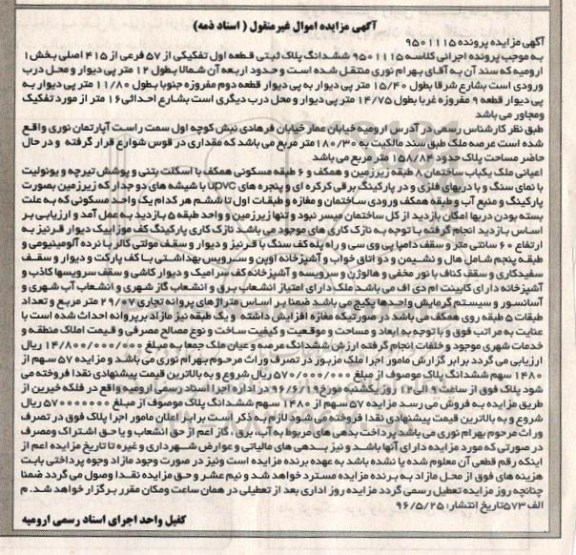 آگهی مزایده اموال غیرمنقول ( اسناد ذمه)
آگهی مزایده پرونده ۹۵۰۱۱۱۵
به موجب پرونده اجرائی کلاسه ۹۵۰۱۱۱۵ ششدانگ پلاک ثبتی قطعه اول تفکیکی از ۵۷ فرعی از ۴۱۵ اصلی بخش۱
ارومیه که سند آن به آقای بهرام نوری منتقل شده است و حدود اربعه آن شمالا بطول ۱۲ متر پی دیوار و محل درب
ورودی است بشارع شرقا بطول ۱۵/۴۰ متر پی دیوار به پی دیوار قطعه دوم مفروزه جنوبا بطول ۱۱/۸۰ متر پی دیوار به
پی دیوار قطعه ۹ مفروزه غربا بطول ۱۴/۷۵ متر پی دیوار و محل درب دیگری است بشارع احداثی ۱۶ متر از مورد تفکیک
ومجاور می باشد
طبق نظر کارشناس رسمی در آدرس ارومیه خیابان عمار خیابان فرهادی نبش کوچه اول سمت راست آپارتمان نوری واقع
شده است عرصه ملک طبق سند مالکیت به ۱۸۰/۳۰ متر مربع می باشد که مقداری در قوس شوارع قرار گرفته و در حال
حاضر مساحت پلاک حدود ۱۵۸/۸۴ متر مربع می باشد
اعیانی ملک یکباب ساختمان ۸ طبقه زیرزمین و همکف و ۶ طبقه مسکونی همکف با اسکلت بتنی و پوشش تیرچه و یونولیت
با نمای سنگ و با دربهای فلزی و در پارکینگ برقی کرکره ای و پنجره های upvc با شیشه های دو جدار که زیرزمین بصورت
پارکینگ و منبع آب و طبقه همکف ورودی ساختمان و مغازه و طبقات اول تا ششم هر کدام یک واحد مسکونی که به علت
بسته بودن دربها امکان بازدید از کل ساختمان میسر نبود و تنها زیرزمین و واحد طبقه ۵ بازدید به عمل آمد و ارزیابی بر
اساس بازدید انجام گرفته با توجه به نازک کاری های موجود می باشد نازک کاری پارکینگ کف موزاییک دیوار قرنیز به
ارتفاع ۶۰ سانتی متر و سقف دامپا پی وی سی و راه پله کف سنگ با قرنیز و دیوار و سقف مولتی کالر با نرده آلومینیومی و
طبقه پنجم شامل هال و نشیمن و دو اتاق خواب و آشپزخانه اوپن و سرویس بهداشتی با کف پارکت و دیوار و سقف
سفیدکاری و سقف کناف با نور مخفی و هالوژن و سرویسه و آشپزخانه کف سرامیک و دیوار کاشی و سقف سرویسها کاذب و
آشپزخانه دارای کابینت ام دی اف می باشد ملک دارای امتیاز انشعاب برق و انشعاب گاز شهری و انشعاب آب شهری و
آسانسور و سیستم گرمایش واحدها پکیج می باشد ضمنا بر اساس متراژ های پروانه تجاری ۲۹/۰۷ متر مربع و تعداد
طبقات ۵ طبقه روی همکف می باشد در صورتیکه مغازه افزایش داشته و یک طبقه نیز مازاد بر پروانه احداث شده است با
عنایت به مراتب فوق و با توجه به ابعاد و مساحت و موقعیت و کیفیت ساخت و نوع مصالح مصرفی و قیمت املاک منطقه و
خدمات شهری موجود و خلفات انجام گرفته ارزش ششدانگ عرصه و عیان ملک جمعا به مبلغ ۱۴/۸۰۰/۰۰۰/۰۰۰ ریال
ارزیابی می گردد برابر گزارش مامور اجرا ملک مزبور در تصرف وراث مرحوم بهرام نوری می باشد و مزایده ۵۷ سهم از
۱۴۸۰ سهم ششدانگ پلاک موصوف از مبلغ ۵۷۰/۰۰۰/۰۰۰ ریال شروع و به بالاترین قیمت پیشنهادی نقدا فروخته می
شود پلاک فوق از ساعت ۹ الی ۱۲ روز یکشنبه مورخ ۹۶/۶/۱۹ در اداره اجرا اسناد رسمی ارومیه واقع در فلکه خیرین از
طریق مزایده به فروش می رسد مزایده ۵۷ سهم از ۱۴۸۰ سهم ششدانگ پلاک موصوف از مبلغ ۵۷۰۰۰۰۰۰۰ ریال
شروع و به بالاترین قیمت پیشنهادی نقدا فروخته می شود لازم به ذکر است برابر اعلان مامور اجرا پلاک فوق در تصرف
وراث مرحوم بهرام نوری می باشد پرداخت بدهی های مربوط به آب، برق ، گاز اعم از حق انشعاب و یا حق اشتراک ومصرف
در صورتی که مورد مزایده دارای آنها باشد و نیز بدهی های مالیاتی و عوارض شهرداری و غیره تا تاریخ مزایده اعم از
اینکه رقم قطعی آن معلوم شده یا نشده باشد به عهده برنده مزایده است ونیز در صورت وجود مازاد وجوه پرداختی بابت
هزینه های فوق از محل مازاد به برنده مزایده مسترد خواهد شد و نیم عشر و حق مزایده نقدا وصول می گردد ضمنا
چنانچه روز مزایده تعطیل رسمی گردد مزایده روز اداری بعد از تعطیلی در همان ساعت ومکان مقرر برگزار خواهد شد. م
الف ۵۷۳ تاریخ انتشار: ۹۶/۵/۲۵
کفیل واحد اجرای اسناد رسمی ارومیه